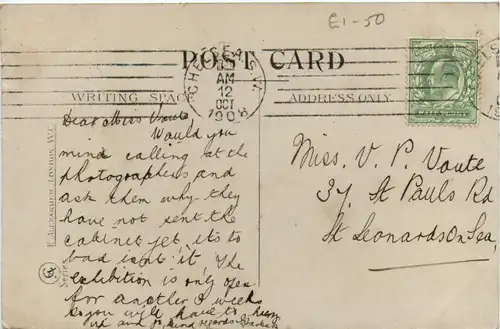 E1-50
POST CARD
CHELSEA. S.W.
AM
12
OCT
1908
WRITING SPACE
ADDRESS ONLY.
Dear Miss Voute
Would you
mind calling at the
photographers and
ask them why they
have not sent the
cabinet yet, its to
bad isnt it. The
exhibition is only open
for another 2 weeks
so you will have to hurry
up and go, kind regards
Miss. V. P. Voute
37, St Pauls Rd
St Leonards on Sea,
E. ALEXANDER, LONDON, W.C.
Series